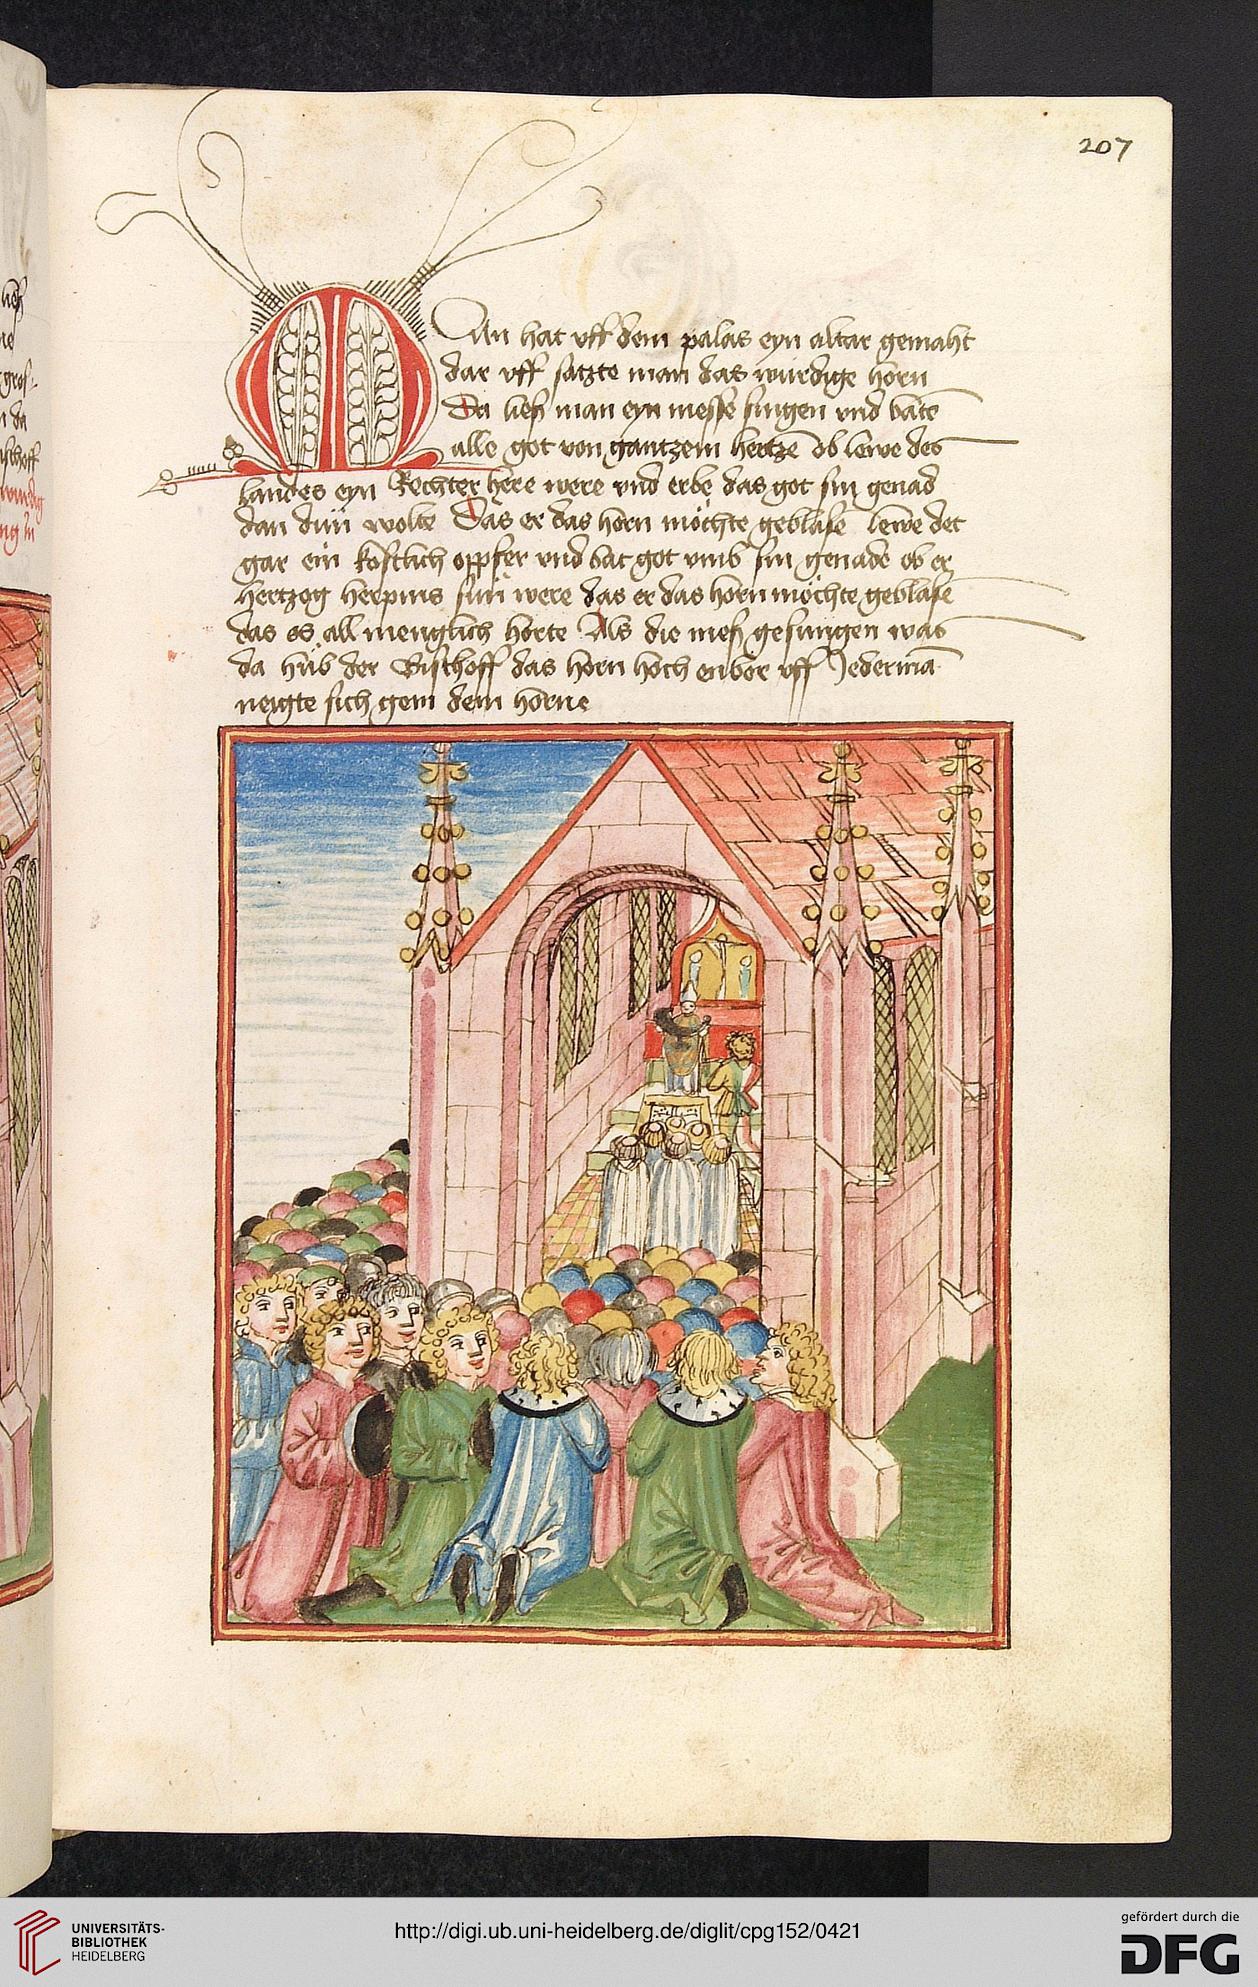 207
Man hat vff dem palas eyn altar gemaht
dar vff satzte man das wurdige horn
Da ließ man eyn messe singen vnd bate
alle got von gantzem hertze ob lewe des
landes eyn Rechter here were vnd erbe das got sin genad
dan dün wolte Das er das horn möchte geblase lewe det
gar ein kostlich oppfer vnd bat got vmb sin genade ob er
hertzog herpins sün were das er das horn möchte geblase
das es all menglich horte Als die meß gesungen was
da hub der Bischoff das horn hoch enbor vff Jederma
neigte sich gem dem horne
UNIVERSITÄTS-
BIBLIOTHEK
HEIDELBERG
http://digi.ub.uni-heidelberg.de/diglit/cpg152/0421
gefördert durch die
DFG